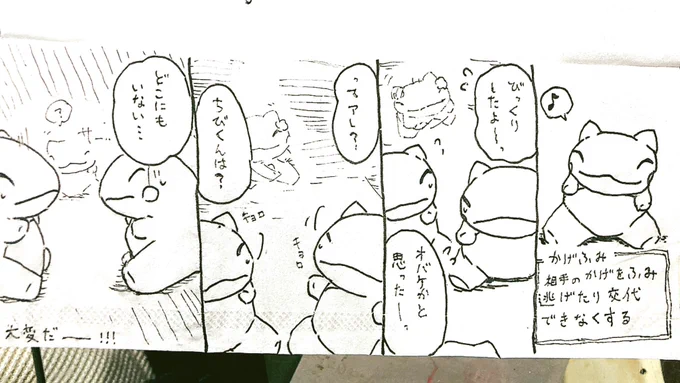 ♪
かげふみ
相手のかげをふみ
逃げたり交代
できなくする
びっくり
したよ〜っ
オバケかと
思ったーっ
ってアレ?
ちびくんは?
キョロ
キョロ
どこにも
いない…
?
サー…
大変だー!!!